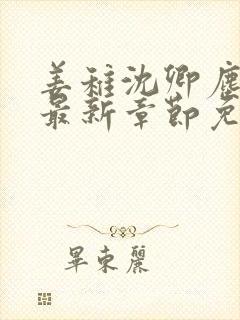 姜稚沈卿塵
最新章節免
畢束麗